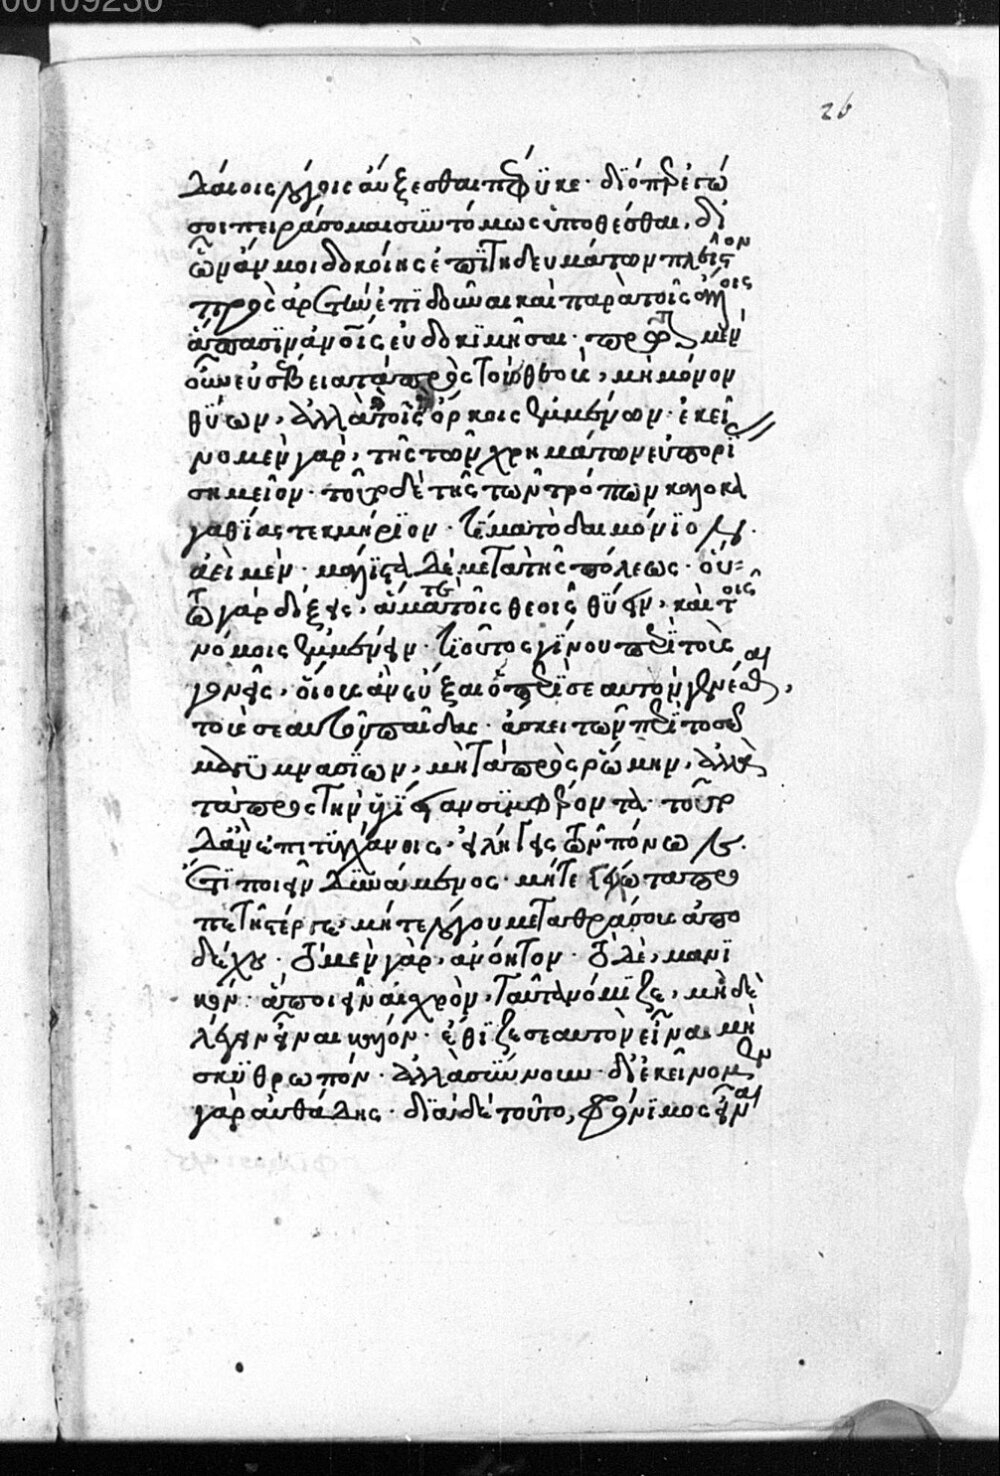 00109230
26
δαίοις λόγοις αὔξεσθαι πέφυκε· διόπερ ἐγώ
σοι πειράσομαι συντόμως ὑποθέσθαι, δι'
ὧν ἄν μοι δοκοίης ἐπιτηδευμάτων πλεῖστον
πρὸς ἀρετὴν ἐπιδοῦναι καὶ παρὰ τοῖς ἄλλοις
ἅπασιν ἀνοις εὐδοκιμῆσαι· πρῶτον μὲν
οὖν εὐσέβει τὰ πρὸς τοὺς θεοὺς, μὴ μόνον
θύων, ἀλλὰ τοῖς ὅρκοις ἐμμένων· ἐκεῖ
νο μὲν γὰρ, τῆς τῶν χρημάτων εὐπορί
σημεῖον· τοῦτο δὲ τῆς τῶν τρόπων καλοκα
γαθίας τεκμήριον· τίμα τὸ δαιμόνιον
ἀεὶ μὲν· μάλιστα δὲ μετὰ τῆς πόλεως· οὕ
τω γὰρ δόξεις, ἅμα τε τοῖς θεοῖς θύειν, καὶ τοῖς
νόμοις ἐμμένειν· τοιοῦτος γίνου περὶ τοὺς
γονεῖς, οἵους ἂν εὔξαιο περὶ σεαυτὸν γενέσθαι,
τοὺς σεαυτοῦ παῖδας· ἄσκει τῶν περὶ τὸ σῶ
μα γυμνασίων, μὴ τὰ πρὸς ῥώμην, ἀλλὰ
τὰ πρὸς τὴν ὑγίειαν συμφέροντα· τούτου
δ' ἂν ἐπιτυγχάνοις, εἰ λήγεις τῶν πόνων
ἔτι ποιεῖν δυνάμενος· μήτε γέλωτα προ
πετῆ στέργε, μήτε λόγον μετὰ θράσους ἀπο
δέχου· τὸ μὲν γὰρ, ἀνόητον· τὸ δὲ, μανι
κόν· ἃ ποιεῖν αἰσχρὸν, ταῦτα νόμιζε, μηδὲ
λέγειν εἶναι καλόν· ἔθιζε σεαυτὸν εἶναι μὴ
σκυθρωπόν· ἀλλὰ σύννουν· δι' ἐκεῖνο μὲν
γὰρ αὐθάδης· διὰ δὲ τοῦτο, φρόνιμος εἶναι